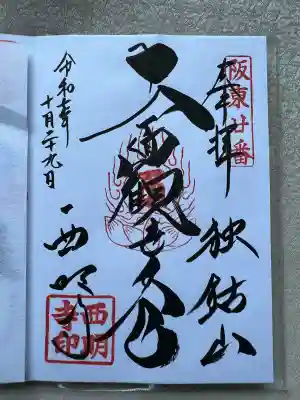 阪東廿番
奉拝
独鈷山
面観世音
西明寺
西明寺印
令和七年
十月二十九日